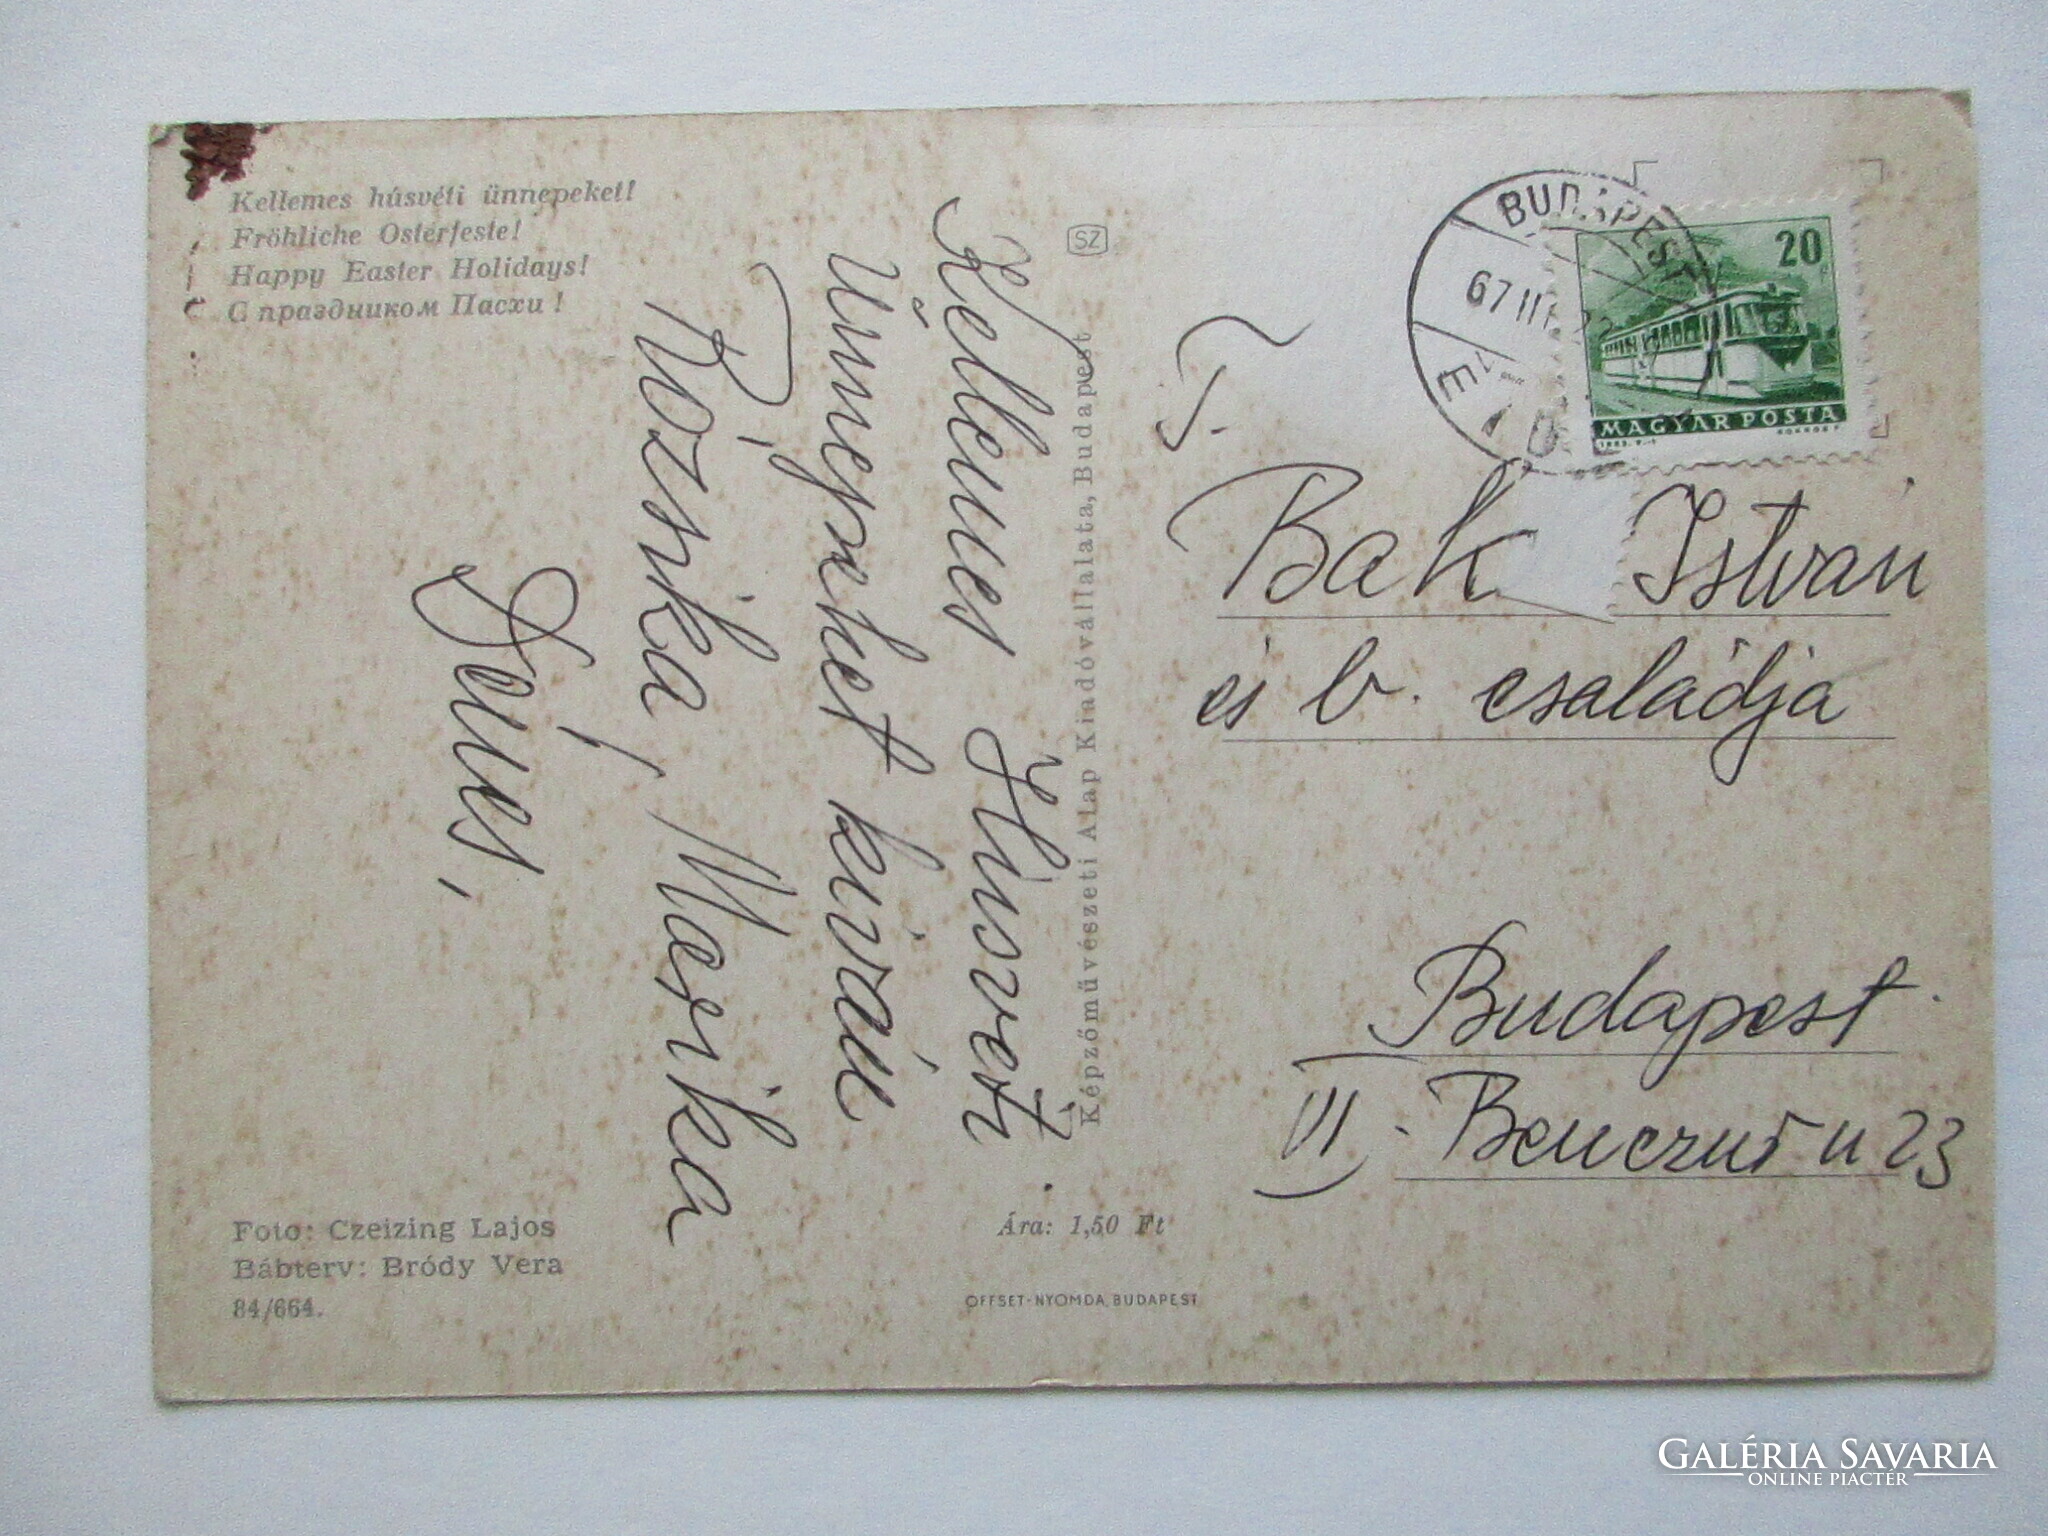 Kellemes húsvéti ünnepeket!
Fröhliche Osterfeste!
Happy Easter Holidays!
С праздником Пасхи!
Kellemes Husveti
Ünnepeket kiván
Rózsika, Marika
Dénes,
Foto: Czeizing Lajos
Bábterv: Bródy Vera
84/664.
SZ
Képzőművészeti Alap Kiadóvállalata, Budapest
Ára: 1,50 Ft
OFFSET-NYOMDA, BUDAPEST
BUDAPEST
67 III
20
MAGYAR POSTA
Bak István
és b. családja
Budapest
VI. Benczur u 23
GALÉRIA SAVARIA
ONLINE PIACTÉR